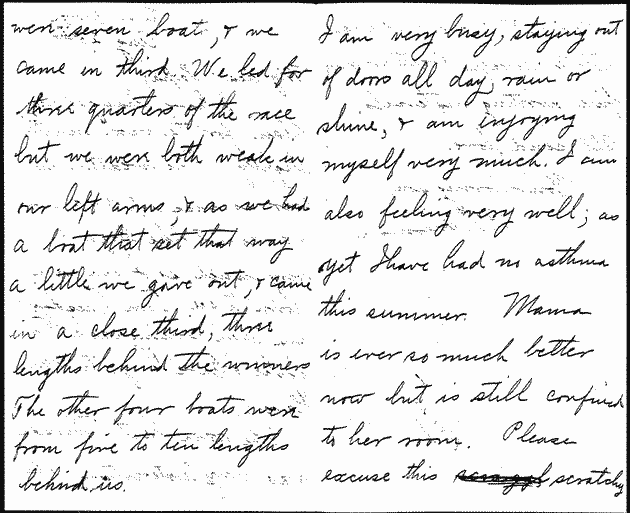 were seven boat, & we
came in third. We led for
three quarters of the race
but we were both weak in
our left arms, & as we had
a boat that set that way
a little we gave out, & came
in a close third, three
lengths behind the winners
The other four boats were
from five to ten lengths
behind us.
I am very busy, staying out
of doors all day, rain or
shine, & am enjoying
myself very much. I am
also feeling very well; as
yet I have had no asthma
this summer. Mama
is ever so much better
now but is still confined
to her room. Please
excuse this scratchy